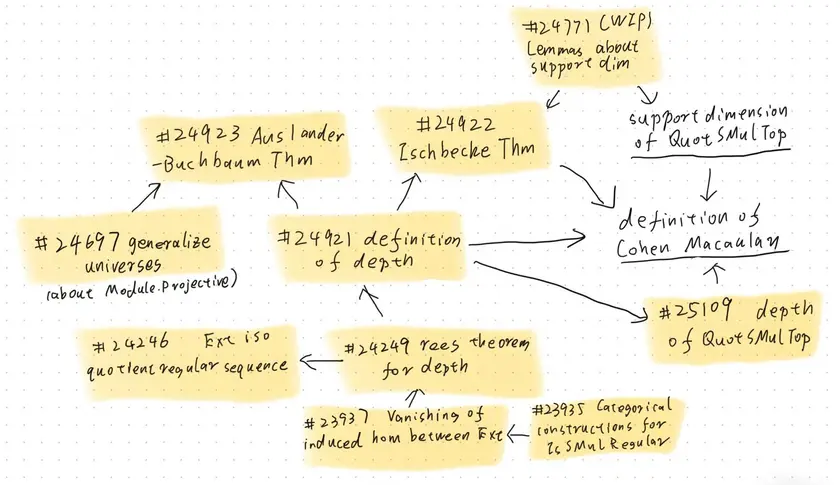 #24771 (WIP)
Lemmas about
support dim
#24923 Auslander
-Buchbaum Thm
#24922
Ischbecke Thm
support dimension
of QuotSMulTop
#24697 generalize
universes
(about Module.Projective)
#24921 definition
of depth
definition of
Cohen Macaulay
#25109 depth
of QuotSMulTop
#24246 Ext iso
quotient regular sequence
#24249 rees theorem
for depth
#23937 Vanishing of
induced hom between Ext
#23935 Catogorical
constructions for
IsSMulRegular